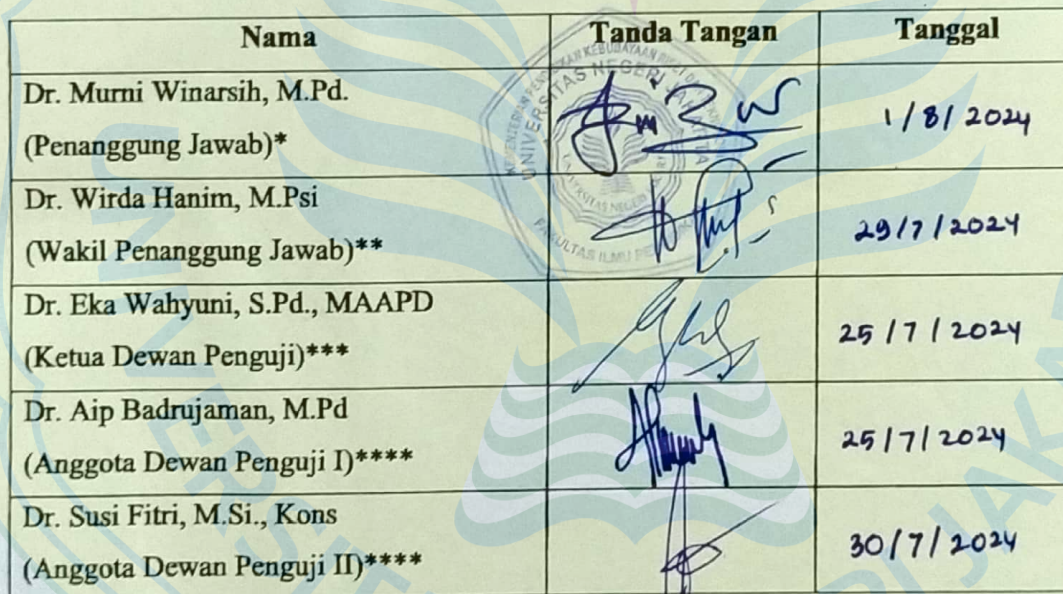 Nama Tanda Tangan Tanggal
Dr. Murni Winarsih, M.Pd.
(Penanggung Jawab)* 1/8/2024
Dr. Wirda Hanim, M.Psi
(Wakil Penanggung Jawab)** 29/7/2024
Dr. Eka Wahyuni, S.Pd., MAAPD
(Ketua Dewan Penguji)*** 25/7/2024
Dr. Aip Badrujaman, M.Pd
(Anggota Dewan Penguji I)**** 25/7/2024
Dr. Susi Fitri, M.Si., Kons
(Anggota Dewan Penguji II)**** 30/7/2024
UNIVERSITAS NEGERI